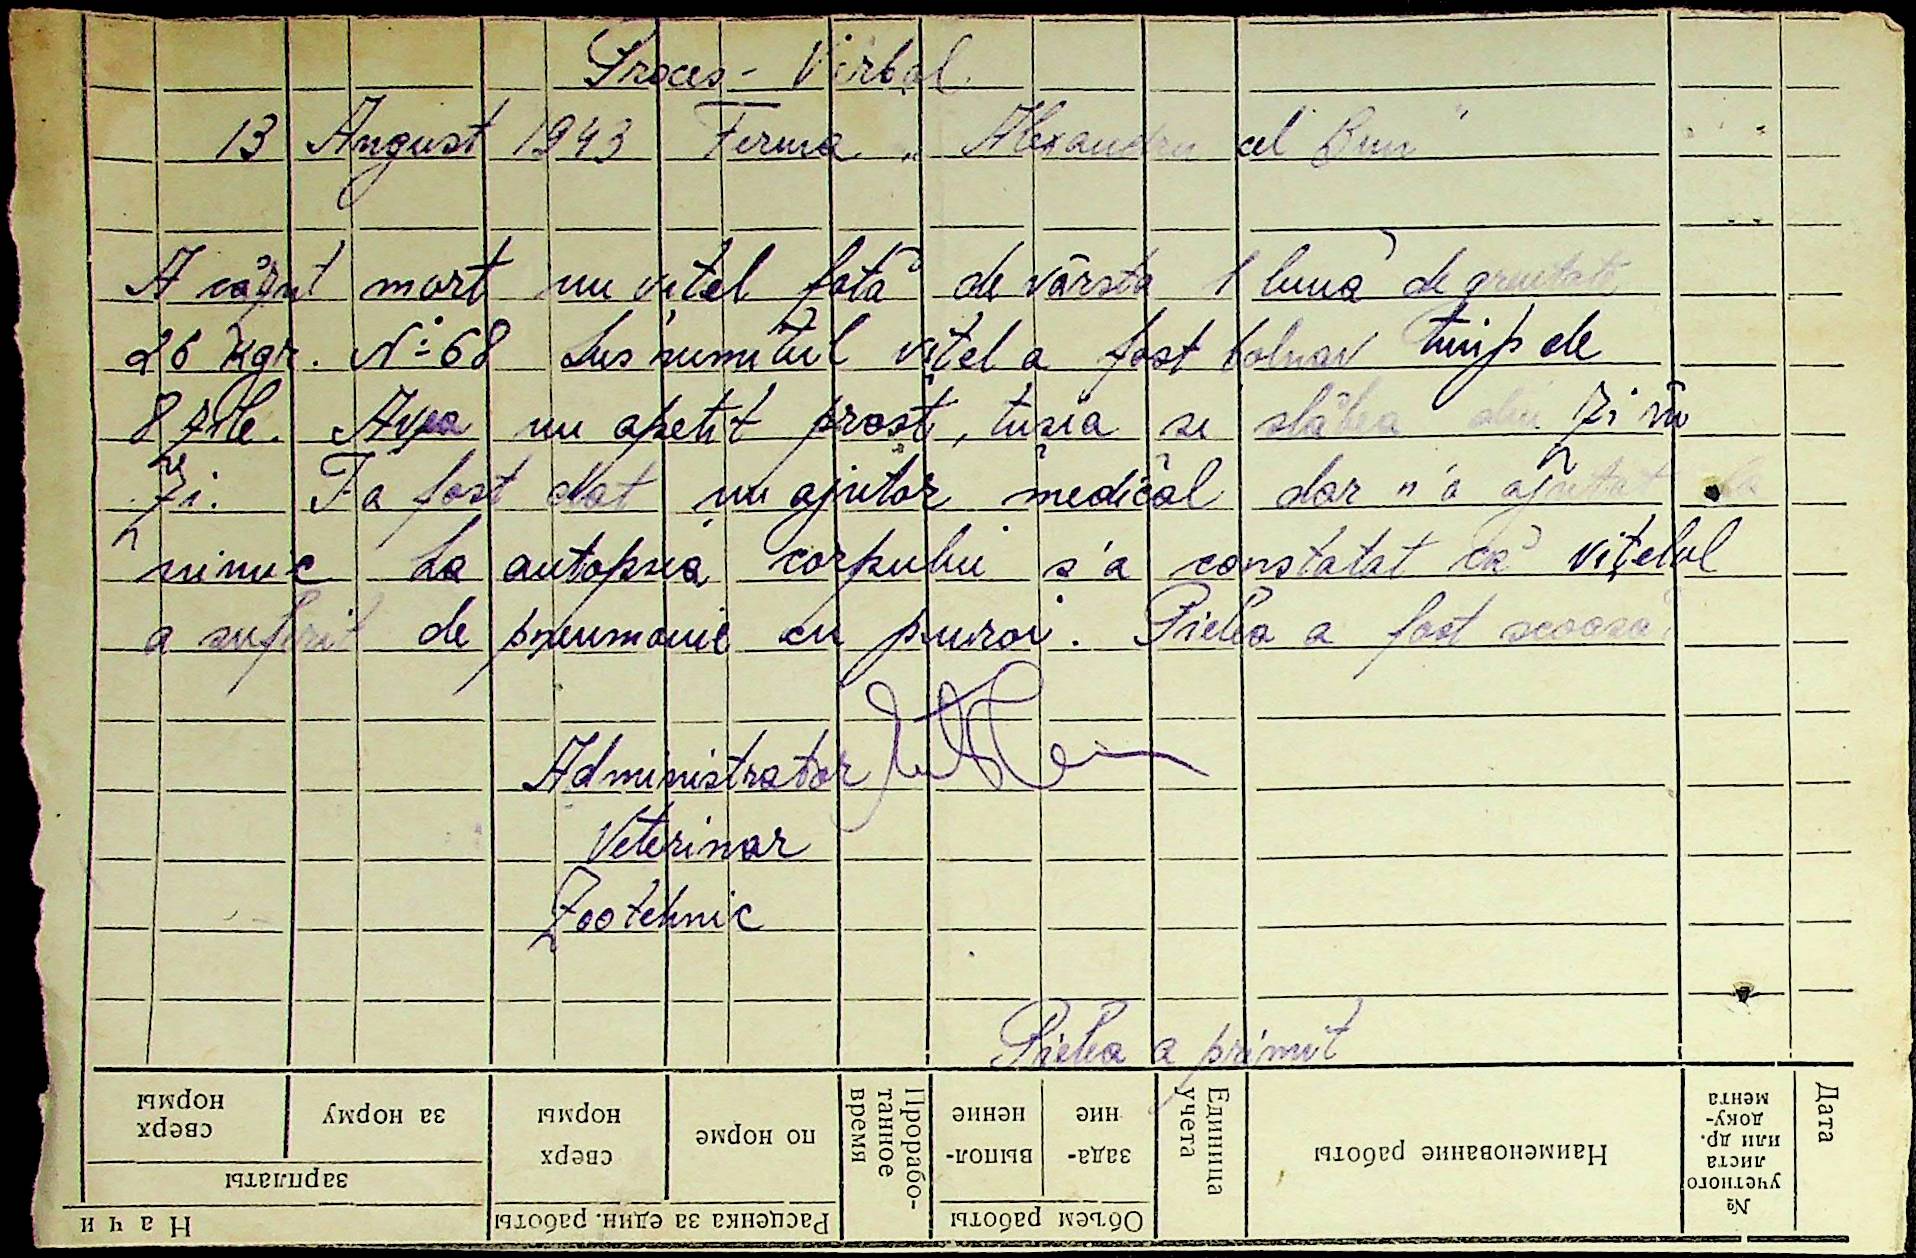 Proces- Verbal
13 August 1943 Ferma „Alexandru cel Bun"
A căzut mort un vitel fată de vârsta 1 lună de greutate
26 kgr. No 68 Sus numitul vițel a fost bolnav timp de
8 zile. Avea un apetit prost, tusia si slăbea din zi în
zi. I-a fost dat un ajutor medical dar n'a ajutat la
nimic La autopsia corpului s'a constatat că vițelul
a suferit de pneumonie cu puroi. Pielea a fost scoasă.
Administrator
Veterinar
Zootehnic
Pielea a primit
Дата
№ учетного листа или др. документа
Наименование работы
Единица учета
Объем работы
зада-
ние
выпол-
нение
Прорабо-
танное
время
Расценка за един. работы
по норме
сверх
нормы
Начи
зарплаты
за норму
сверх
нормы